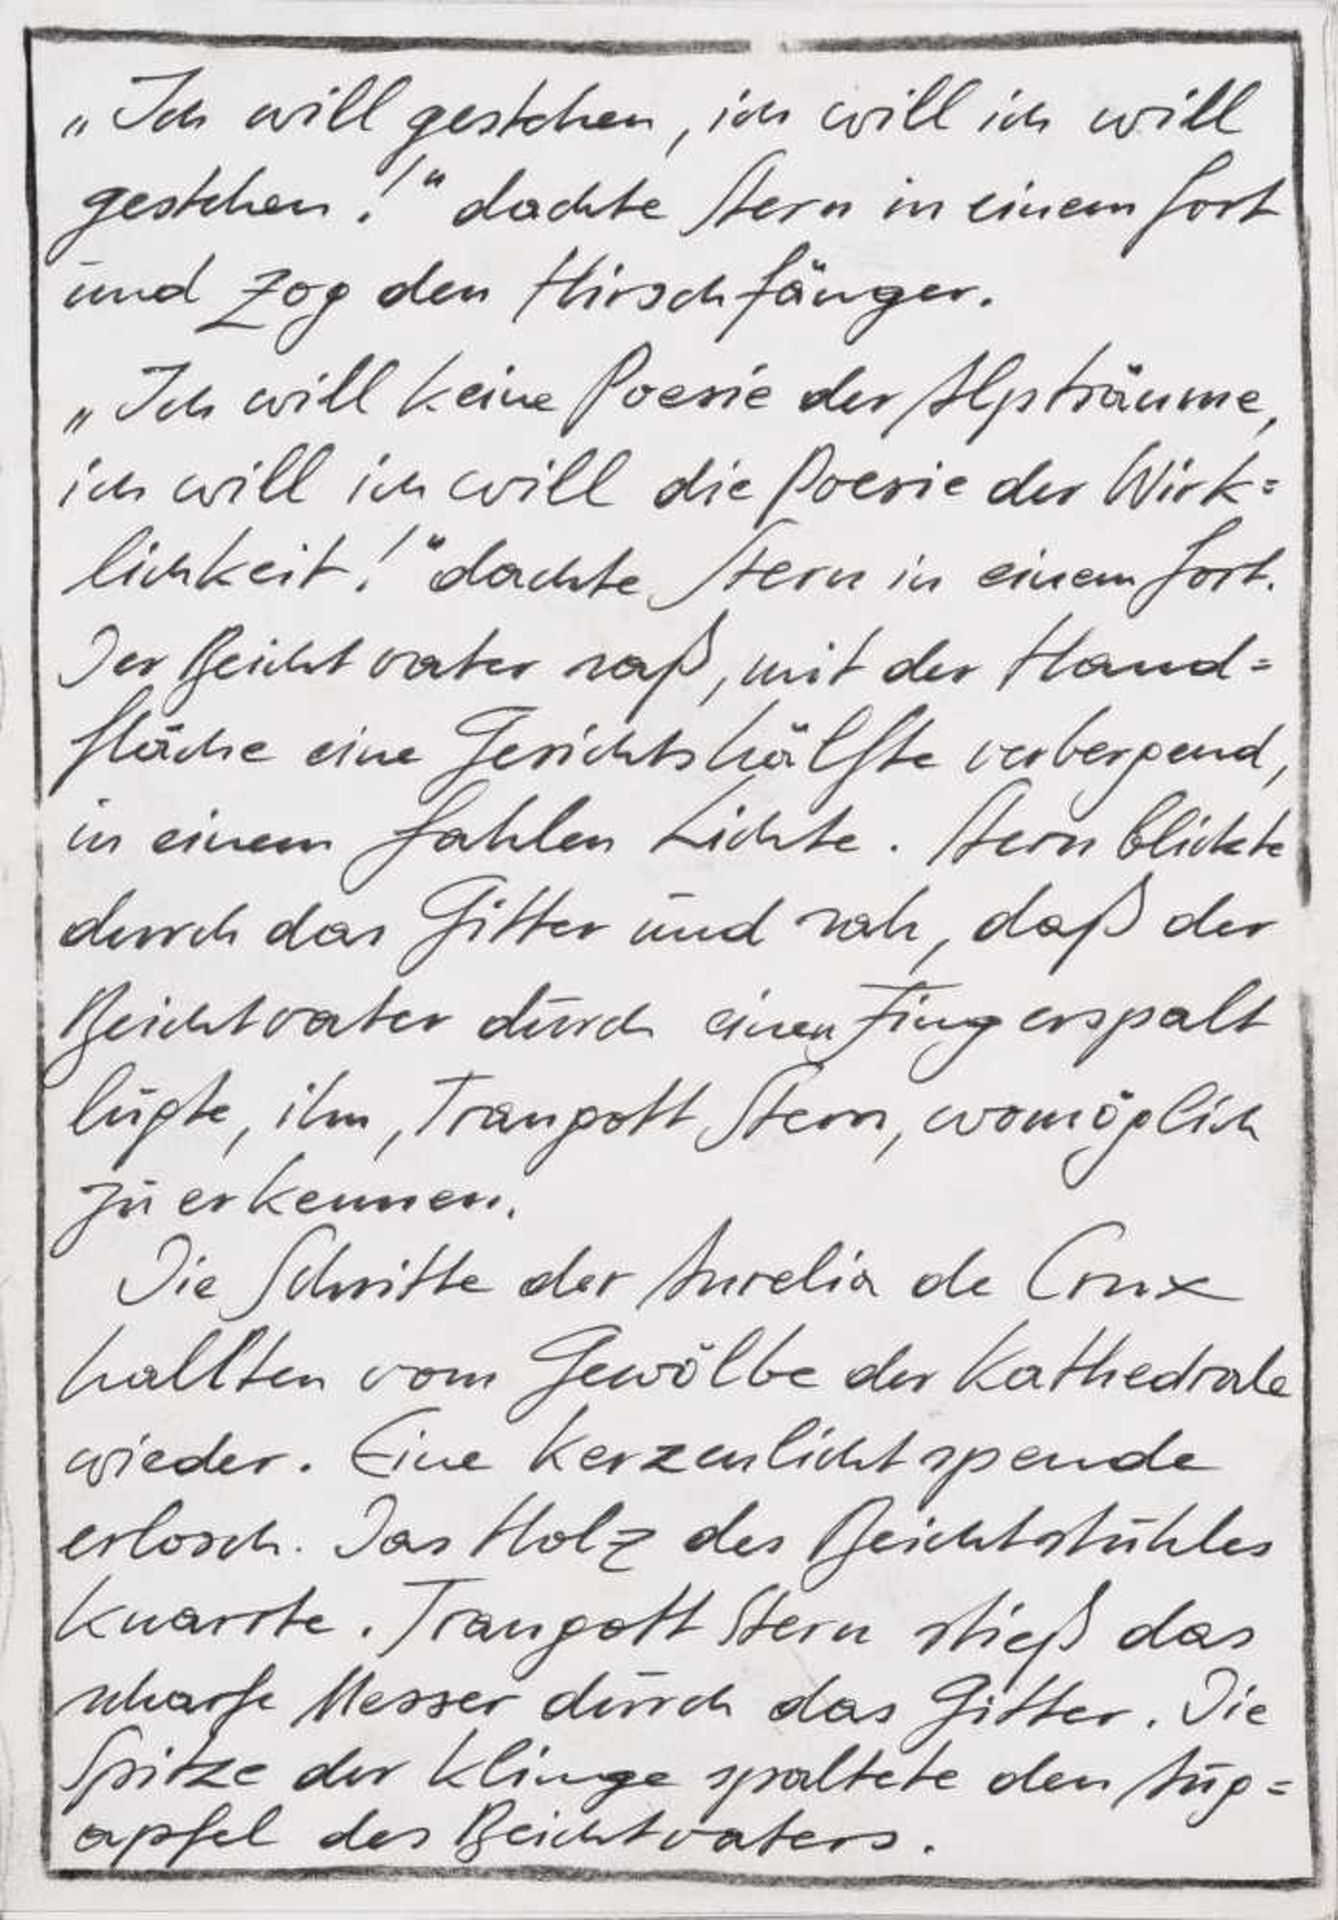 „Ich will gestehen, ich will ich will
gestehen!“ dachte Stern in einem fort
und zog den Hirschfänger.
„Ich will keine Poesie der Alpträume,
ich will ich will die Poesie der Wirk=
lichkeit!“ dachte Stern in einem fort.
Der Beichtvater saß, mit der Hand=
fläche eine Gesichtshälfte verbergend,
in einem fahlen Lichte. Stern blickte
durch das Gitter und sah, daß der
Beichtvater durch einen Fingerspalt
lugte, ihn, Traugott Stern, womöglich
zu erkennen.
Die Schritte der Aurelia de Crux
hallten vom Gewölbe der Kathedrale
wieder. Eine Kerzenlichtspende
erlosch. Das Holz des Beichtstuhles
knarrte. Traugott Stern stieß das
scharfe Messer durch das Gitter. Die
Spitze der Klinge spaltete den Aug=
apfel des Beichtvaters.